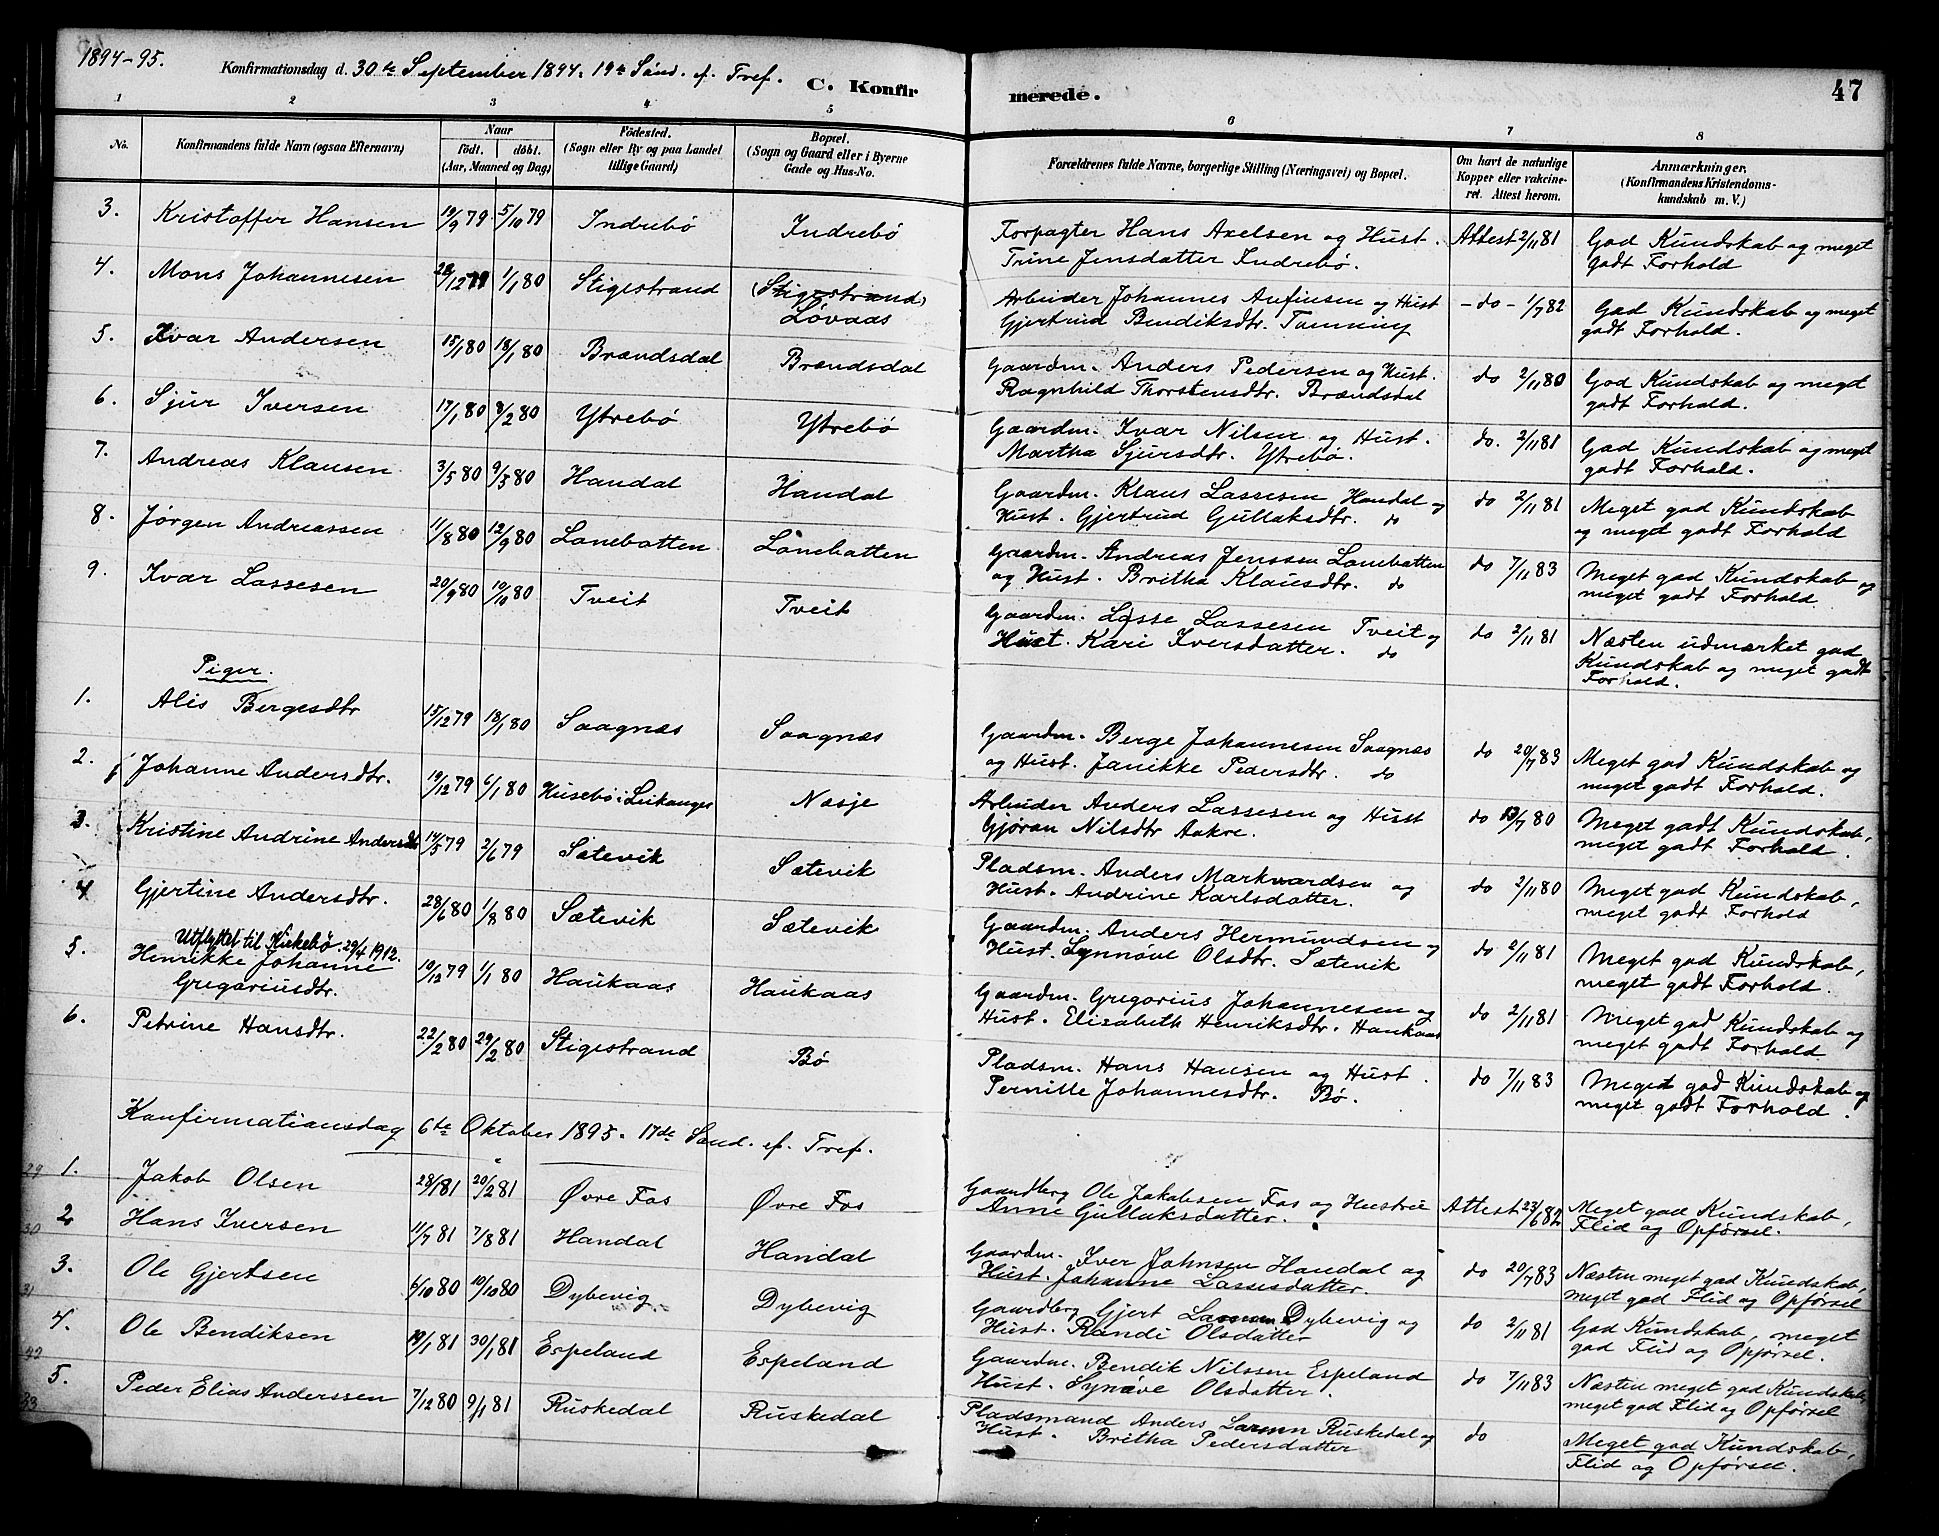 1894-95.
Konfirmationsdag d. 30te September 1894. 19de Sönd. ef. Tref.
C. Konfirmerede.
47
1 2 3 4 5 6 7 8
No.
Konfirmandens fulde Navn (ogsaa Efternavn)
Naar
födt. döbt.
(Aar, Maaned og Dag)
Födested.
(Sogn eller By og paa Landet
tillige Gaard)
Bopæl.
(Sogn og Gaard eller i Byerne
Gade og Hus-No.
Forældrenes fulde Navne, borgerlige Stilling (Næringsvei) og Bopæl.
Om havt de naturlige
Kopper eller vakcine-
ret. Attest herom.
Anmærkninger.
(Konfirmandens Kristendoms-
kundskab m. V.)
3. Kristoffer Hansen 19/9 79 5/10 79 Indrebö Indrebö Forpagter Hans Axelsen og Hust. Attest 2/11 81 God Kundskab og meget
Trine Jensdatter Indrebö. godt Forhold
4. Mons Johannesen 28/12 79 1/1 80 Stigestrand (Stigestrand) Arbeider Johannes Anfinsen og Hust - do - 1/7 82 God Kundskab og meget
Løvaas Gjertrud Bendiksdtr. Tamning godt Forhold.
5. Ivar Andersen 15/1 80 18/1 80 Brændsdal Brændsdal Gaardm. Anders Pedersen og Hust. do 2/11 80 God Kundskab og meget
Ragnhild Thorstensdtr. Brændsdal godt Forhold.
6. Sjur Iversen 17/1 80 8/2 80 Ytrebö Ytrebö Gaardm. Ivar Nilsen og Hust. do. 2/11 81 God Kundskab og meget
Martha Sjursdtr. Ytrebö. godt Forhold.
7. Andreas Klausen 3/5 80 9/5 80 Handal Handal Gaardm. Klaus Lassesen Handal og do 2/11 81 Meget god Kundskab
Hust. Gjertrud Gullaksdtr. do og meget godt Forhold
8. Jörgen Andreassen 11/8 80 12/9 80 Lonebotten Lonebotten Gaardm. Andreas Jenssen Lonebotten do 7/11 83 Meget god Kundskab og
og Hust. Britha Klausdtr. do meget godt Forhold.
9. Ivar Lassesen 20/9 80 10/10 80 Tveit Tveit Gaardm. Lasse Lassesen Tveit og do 2/11 81 Næsten udmærket god
Hust. Kari Iversdatter. do Kundskab og meget godt
Forhold.
Piger.
1. Alis Bergesdtr 15/12 79 18/1 80 Saagnæs Saagnæs Gaardm. Berge Johannesen Saagnæs do 20/7 83 Meget god Kundskab og
og Hust. Janikke Pedersdtr. do meget godt Forhold.
2. Johanne Andersdtr. 19/12 79 6/1 80 Husebö i Leikanger Næsje Arbeider Anders Lassesen og Hust do 13/7 80 Meget godt Kundskab,
Gjöran Nilsdtr Aakre. meget godt Forhold.
3. Kristine Andrine Andersdtr 14/5 79 2/6 79 Sætevik Sætevik Pladsm. Anders Markvardsen og do 2/11 80 Meget god Kundskab,
Hust. Andrine Karlsdatter. meget godt Forhold
4 Gjertine Andersdtr. 28/6 80 1/8 80 Sætevik Sætevik Gaardm. Anders Hermundsen og do 2/11 81 Meget god Kundskab,
Hust. Synnöve Olsdtr. Sætevik meget godt Forhold.
Utflyttet til Kirkebö 29/4 1912.
5. Henrikke Johanne 10/12 79 1/1 80 Haukaas Haukaas Gaardm. Gregorius Johannesen og do 2/11 81 Meget god Kundskab og
Gregoriusdtr. Hust. Elizabeth Henriksdtr. Haukaas meget godt Forhold
6. Petrine Hansdtr. 22/2 80 29/2 80 Stigestrand Bö Pladsm. Hans Hansen og Hust. do 7/11 83 Meget god Kundskab og
Pernille Johannesdtr. Bö. meget godt Forhold.
Konfirmationsdag 6te Oktober 1895. 17de Sönd. ef. Tref.
29 1. Jakob Olsen 28/1 81 20/2 81 Övre Fos Övre Fos Gaardbrg Ole Jakobsen Fos og Hustrue Attest 23/6 82 Meget god Kundskab,
Anne Gullaksdatter. Flid og Opförsel.
30 2 Hans Iversen 11/7 81 7/8 81 Handal Handal Gaardm. Iver Johnsen Handal og do 20/7 83 Næsten meget god Kundskab,
Hust. Johanne Lassesdatter. meget god Flid og Opförsel
31 3. Ole Gjertsen 6/10 80 10/10 80 Dybevig Dybevig Gaardbrg Gjert Dybevig og do 2/11 81 God Kundskab, meget
Hust. Randi Olsdatter god Flid og Opförsel.
4. Ole Bendiksen 19/1 81 30/1 81 Espeland Espeland Gaardm. Bendik Nilssen Espeland do 7/11 83 Næsten meget god Kundskab,
Hust. Synöve Olsdatter. meget god Flid og Opförsel
33 5. Peder Elias Anderssen 7/12 80 9/1 81 Ruskedal Ruskedal Pladsmand Anders Larsen Ruskedal og do Meget god Kundskab,
Hust. Britha Pedersdatter Flid og Opförsel.